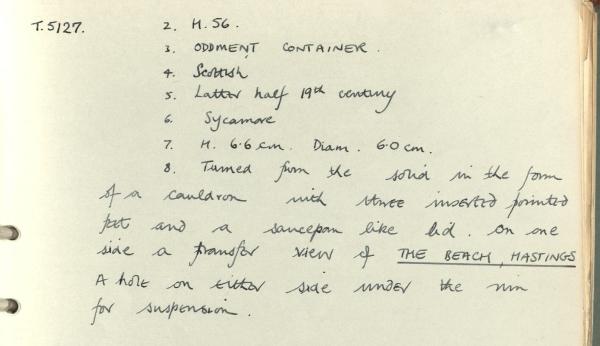 T.5127. 2. H.56.
3. ODDMENT CONTAINER.
4. Scottish
5. Latter half 19th century
6. Sycamore
7. H. 6.6 cm. Diam. 6.0 cm.
8. Turned from the solid in the form
of a cauldron with three inserted pointed
feet and a saucepan like lid. On one
side a transfer view of THE BEACH, HASTINGS
A hole on either side under the rim
for suspension.